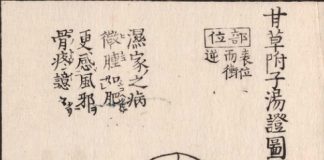 甘草附子湯證圖
部位
表位
而衝
逆
濕家之病
微腫如肥
更感風邪
骨痠